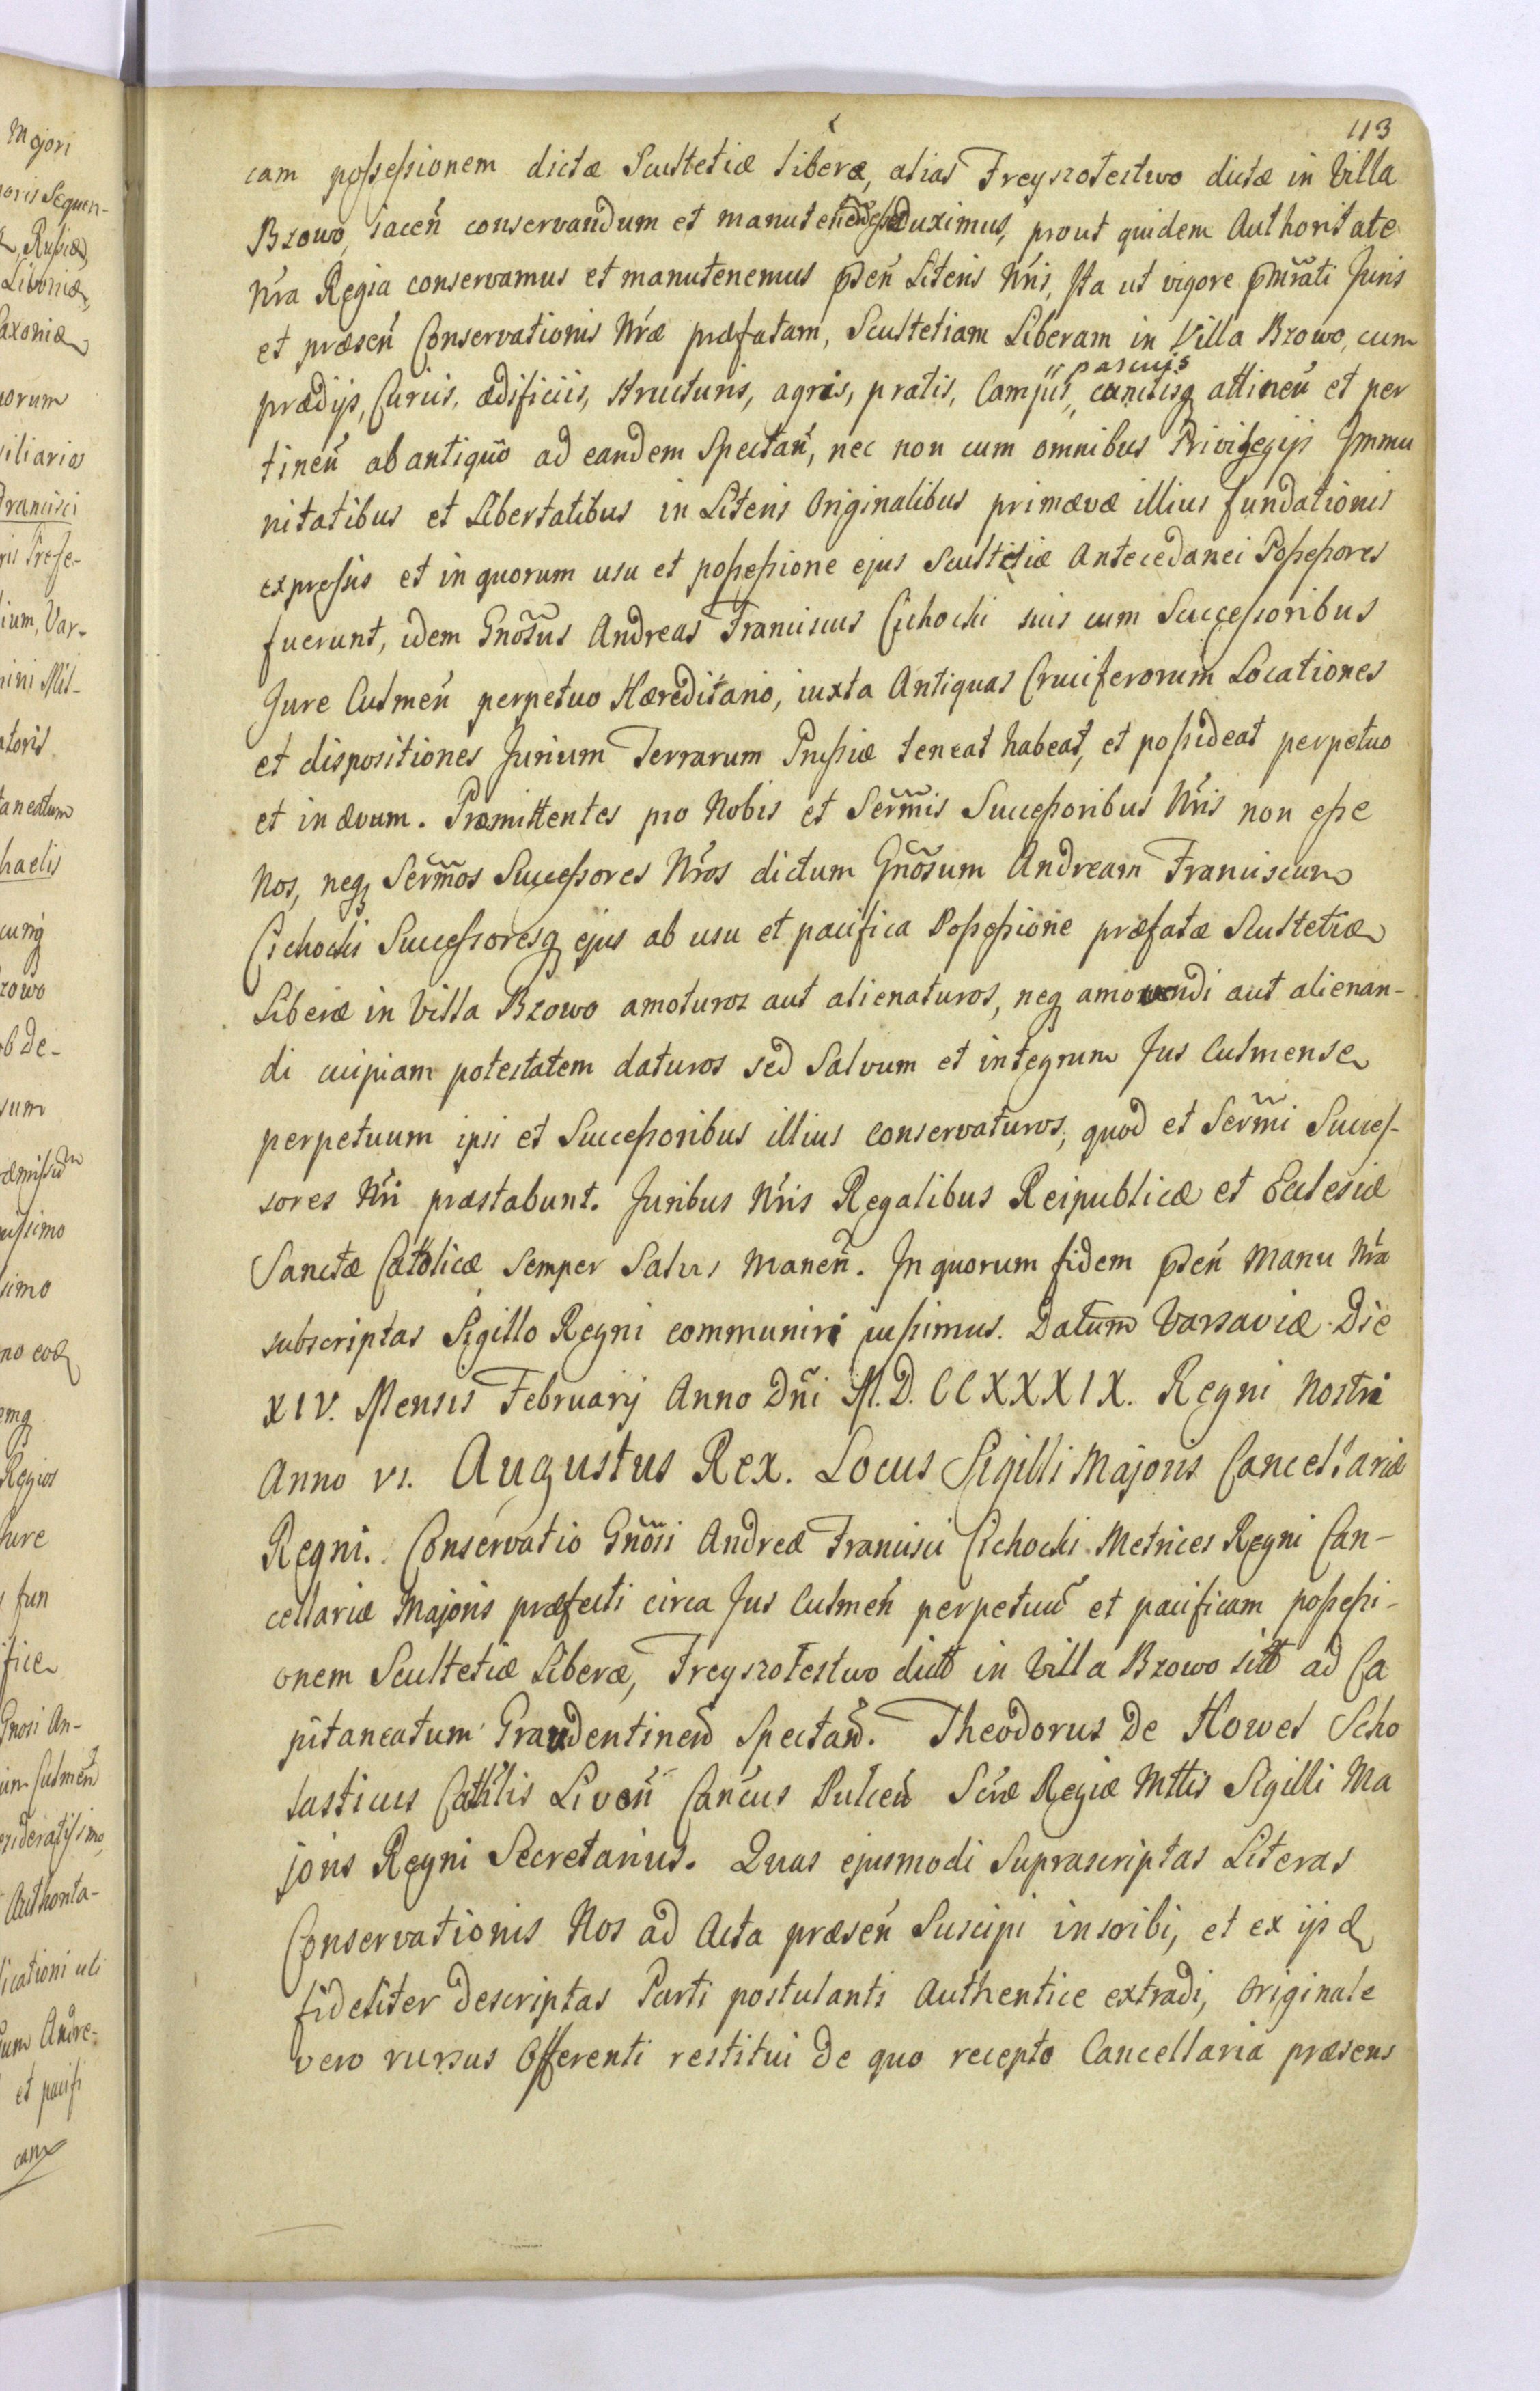 113
cam possessionem dictæ Scultetiæ liberæ, alias Freyszoltestwo dictæ in Villa
Bzowo, iaceñ conservandum et manutenend esse duximus, prout quidem Authoritate
Nra Regia conservamus et manutenemus pñteñ Literis Nris, Ita ut vigore pmrati Juris
et præseñ Conservationis Nræ præfatam, Scultetiam Liberam in Villa Bzowo, cum
prædijs, Curiis, ædificiis, structuris, agris, pratis, Campis, pascuis
cunctisq attineñ et per
tineñ ab antiquo ad eandem Spectañ, nec non cum omnibus Privilegijs Jmmu
nitatibus et Libertatibus in Literis Originalibus primævæ illius fundationis
expressis et in quorum usu et possessione ejus Scultetiæ Antecedanei Possessores
fuerunt, idem Gnosus Andreas Franciscus Cichocki suis cum Successoribus
Jure Culmeñ perpetuo Hæreditario, iuxta Antiquas Cruciferorum Locationes
et dispositiones Jurium Terrarum Prussiæ teneat habeat, et possideat perpetuo
et in ævum. Promittentes pro Nobis et Sermis Successoribus Nris non esse
Nos, neq Sermos Successores Nros dictum Gnosum Andream Franciscum
Cichocki Successoresq ejus ab usu et pacifica Possessione præfatæ Scultetiæ
Liberæ in Villa Bzowo amoturos aut alienaturos, neq amovendi aut alienan-
di cuipiam potestatem daturos sed Salvum et integrum Jus Culmense
perpetuum ipsi et Successoribus illius conservaturos, quod et Sermi Succes-
sores Nri præstabunt. Juribus Nris Regalibus Reipublicæ et Eclesiæ
Sanctæ Catolicæ Semper Salvis Maneñ. In quorum fidem pñteñ Manu Nra
subscriptas Sigillo Regni communiri jussimus. Datum Varsaviæ Die
XIV. Mensis Februarij Anno Dñi M.D.CCXXXIX. Regni Nostri
Anno VI. Augustus Rex. Locus Sigilli Majoris Cancellariæ
Regni. Conservatio Gnosi Andreæ Francisci Cichocki Metrices Regni Can-
cellariæ Majoris præfecti circa Jus Culmeñ perpetuu et pacificam possessi-
onem Scultetiæ Liberæ, Freyszoltestwo dict in Villa Bzowo sit ad Ca
pitaneatum Graudentinen Spectan. Theodorus De Howel Scho
lasticus Cathlis Livoñ Cancus Pulceñ Scræ Regiæ Mttis Sigilli Ma
joris Regni Secretarius. Quas ejusmodi Suprascriptas Literas
Conservationis Nos ad Acta præseñ Suscipi inscribi, et ex ijsd
fideliter descriptas Parti postulanti Authentice extradi, Originale
vero rursus Offerenti restitui de quo recepto Cancellaria præsens